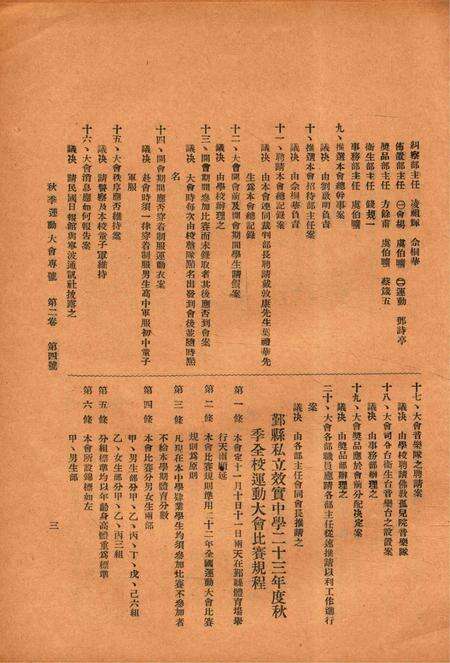 糾察部主任　凌祖輝　余桐華
佈置部主任　㊀會場　虞伯驥　㊁運動　鄭詩亭
獎品部主任　方餘甫　虞伯驥　蔡箴五
衛生部主任　錢規一
事務部主任　虞伯驥
九、推選本會總幹事案
議决　由劉啟明負責
十、推選本會招待部主任案
議决　由余桐華負責
十一、聘請本會總記錄案
議决　由本會連同裁判部長聘請戴敦康先生葉禮華先
生爲本會總記錄
十二、大會開會前及開會期間學生請假案
議决　由學校辦理之
十三、開會期間參加比賽而未錄取者其後應否到會案
議决　大會時每次由校整隊點名出發到會後並隨時點
名
十四、開會期間應否穿着制服運動衣案
議决　赴會時須一律穿着制服男生高中軍服初中童子
軍服
十五、大會秩序應否維持案
議决　請警察及本校童子軍維持
十六、大會消息應如何報告案
議决　請民國日報館與寧波通訊社披露之
秋季運動大會專號　第二卷　第四號
十七、大會音樂隊之聘請案
議决　由學校聘請佛敎孤兒院音樂隊
十八、大會司令台衛生台音樂台之設置案
議决　由事務部辦理之
十九、大會獎品應於會前分配决定案
議决　由獎品部辦理之
二十、大會各部職員應請各部主任從速推請以利工作進行
案
議决　由各部主任會同會長推請之
鄞縣私立效實中學二十三年度秋
季全校運動大會比賽規程
第一條　本會定十一月十日十一日兩天在鄞縣體育塲舉
行天雨順延
第二條　本會比賽規則準用二十二年全國運動大會比賽
規則爲原則
第三條　凡現在本中學肄業學生均須參加比賽不參加者
不給本學期體育分數
第四條　本會比賽分男女生兩部
甲、男生部分甲、乙、丙、丁、戊、己六組
乙、女生部分甲、乙、丙三組
第五條　分組標準均以年齡身高體重爲標準
第六條　本會所設錦標如左
甲、男生部
三